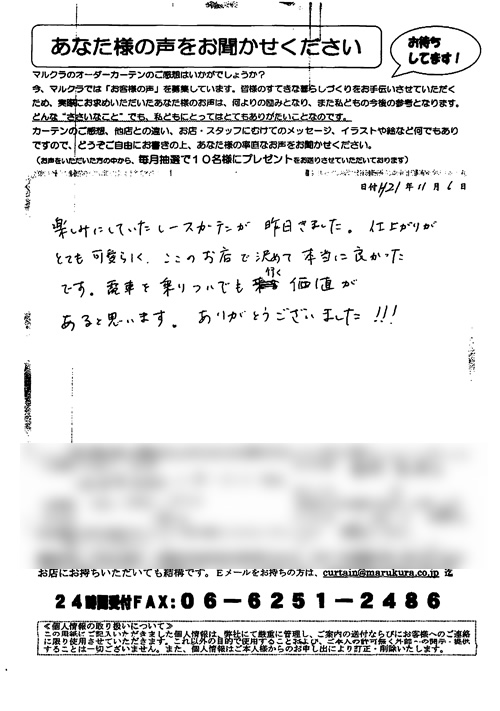 あなた様の声をお聞かせください
お待ち
してます!
マルクラのオーダーカーテンのご感想はいかがでしょうか?
今、マルクラでは「お客様の声」を募集しています。皆様のすてきな暮らしづくりをお手伝いさせていただく
ため、実際にお求めいただいたあなた様のお声は、何よりの励みとなり、また私どもの今後の参考となります。
どんな“ささいなこと”でも、私どもにとってはとてもありがたいことなのです。
カーテンのご感想、他店との違い、お店・スタッフにむけてのメッセージ、イラストや絵など何でもあり
ですので、どうぞご自由にお書きの上、あなた様の率直なお声をお聞かせください。
(お声をいただいた方の中から、毎月抽選で10名様にプレゼントをお送りさせていただいております)
日付 H21年 11月 6日
楽しみにしていたレースカーテンが 昨日きました。 仕上がりが
とても可愛らしく、ここのお店で決めて本当に良かった
です。電車を乗りついでも行く価値が
あると思います。 ありがとうございました!!!
お店にお持ちいただいても結構です。Eメールをお持ちの方は、curtain@marukura.co.jp 迄
24時間受付FAX:06-6251-2486
≪個人情報の取り扱いについて≫
この用紙にご記入いただきました個人情報は、弊社にて厳重に管理し、ご案内の送付ならびにお客様へのご連絡
に限り使用させていただきます。これ以外の目的で使用することおよび、ご本人の許可無く外部への開示・提供
することは一切ございません。また、個人情報はご本人様からのお申し出により訂正・削除いたします。